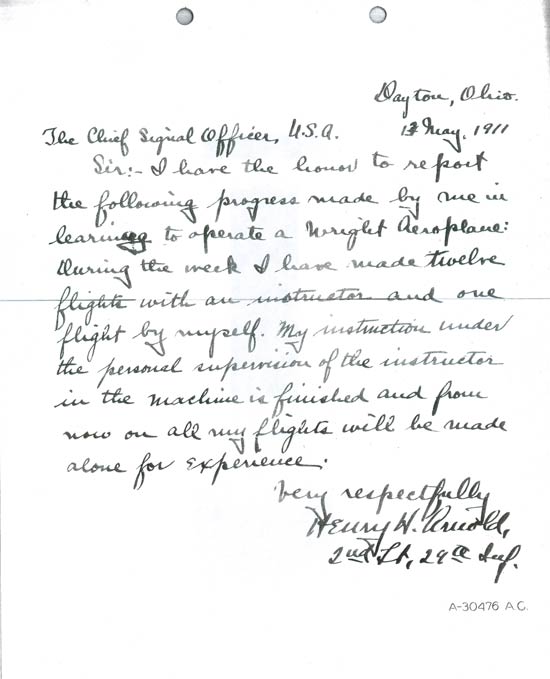 Dayton, Ohio.
13 May, 1911
The Chief Signal Officer, U.S.A.
Sir:- I have the honor to report
the following progress made by me in
learning to operate a Wright Aeroplane:
During the week I have made twelve
flights with an instructor and one
flight by myself. My instruction under
the personal supervision of the instructor
in the machine is finished and from
now on all my flights will be made
alone for experience.
Very respectfully
Henry H. Arnold,
2nd Lt, 29th Inf.
A-30476 A.C.